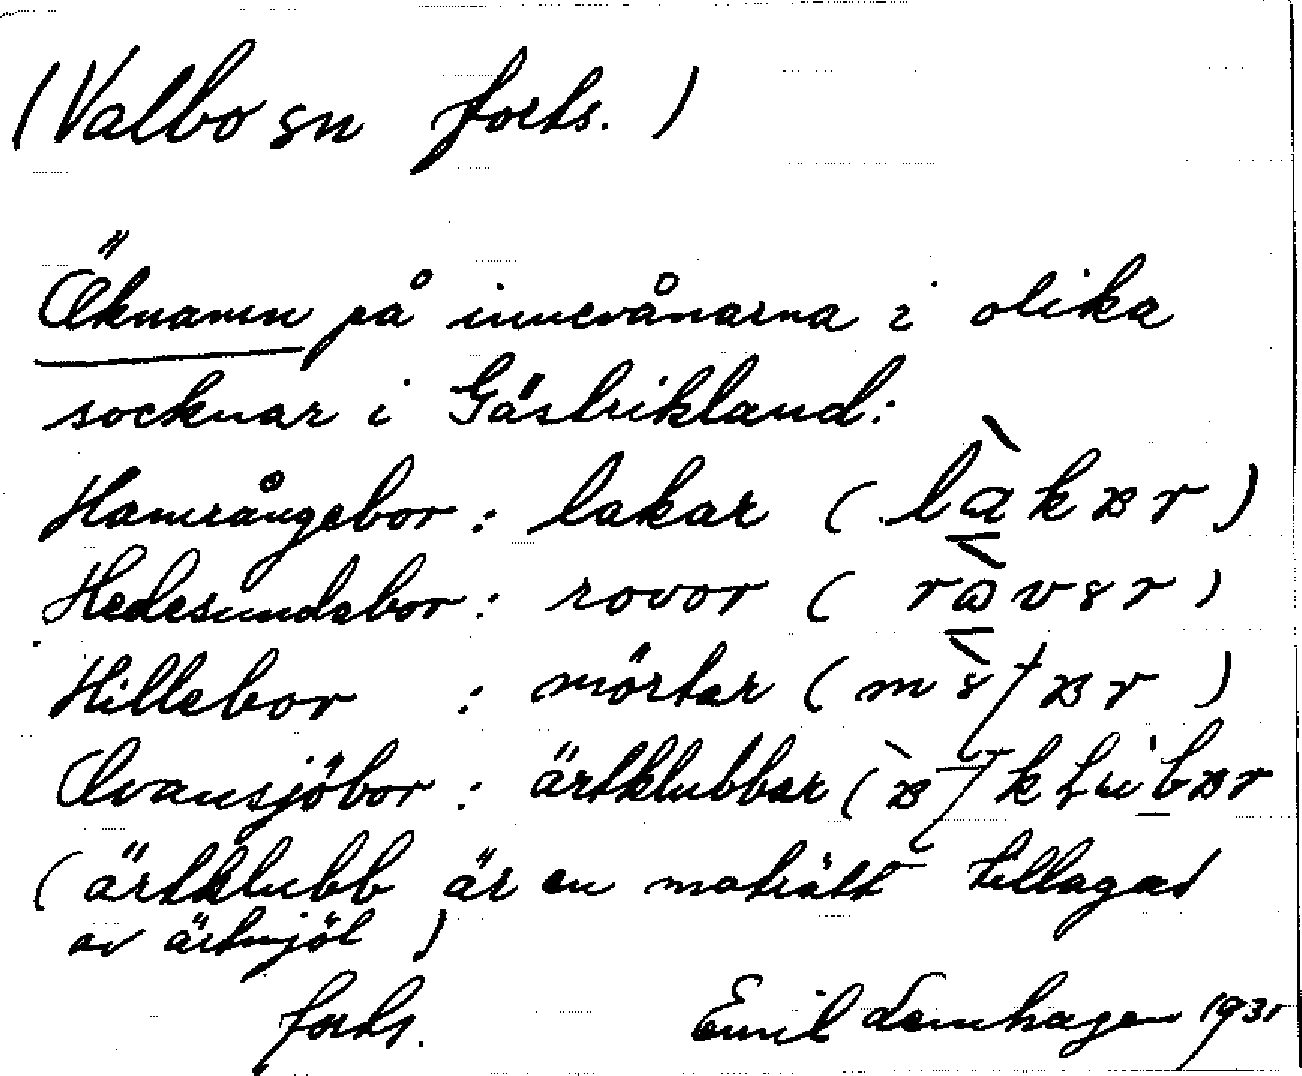 (Valbo sn forts.)
Öknamn på innevånarna i olika
socknar i Gästrikland:
Hamrångebor : lakar (
Hedesundabor : rovor (
Hillebor : mörtar (
Ovansjöbor : ärtklubbar (
(ärtklubb är en maträtt tillagad
av ärtmjöl )
forts. Emil 1931